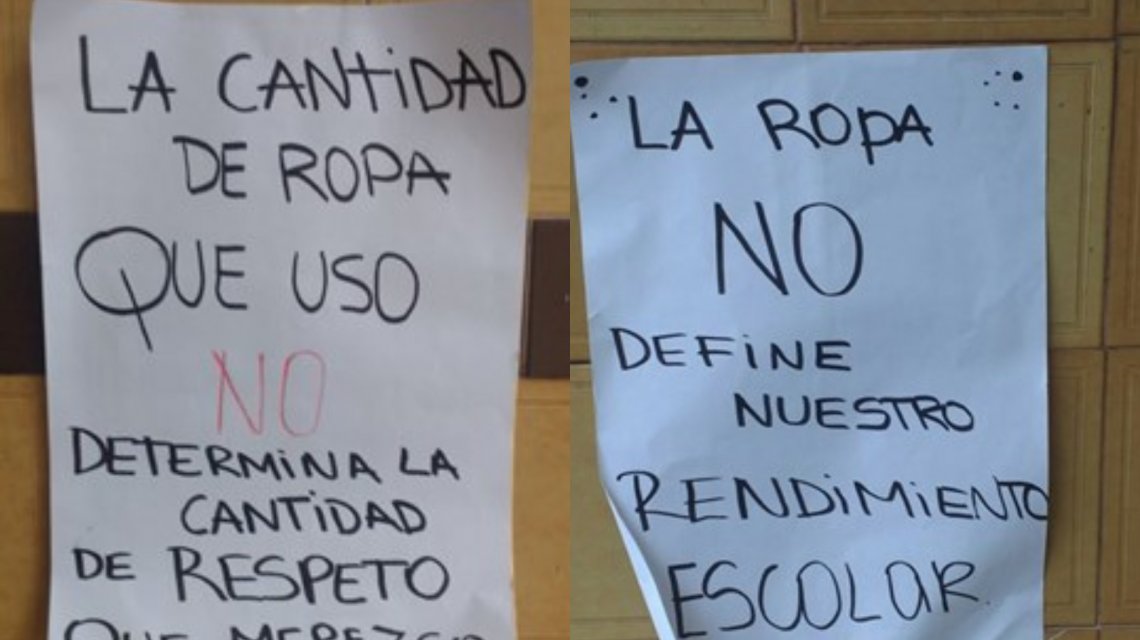 LA CANTIDAD
DE ROPA
QUE USO
NO
DETERMINA LA
CANTIDAD
DE RESPETO
QUE MEREZCO
LA ROPA
NO
DEFINE
NUESTRO
RENDIMIENTO
ESCOLAR.